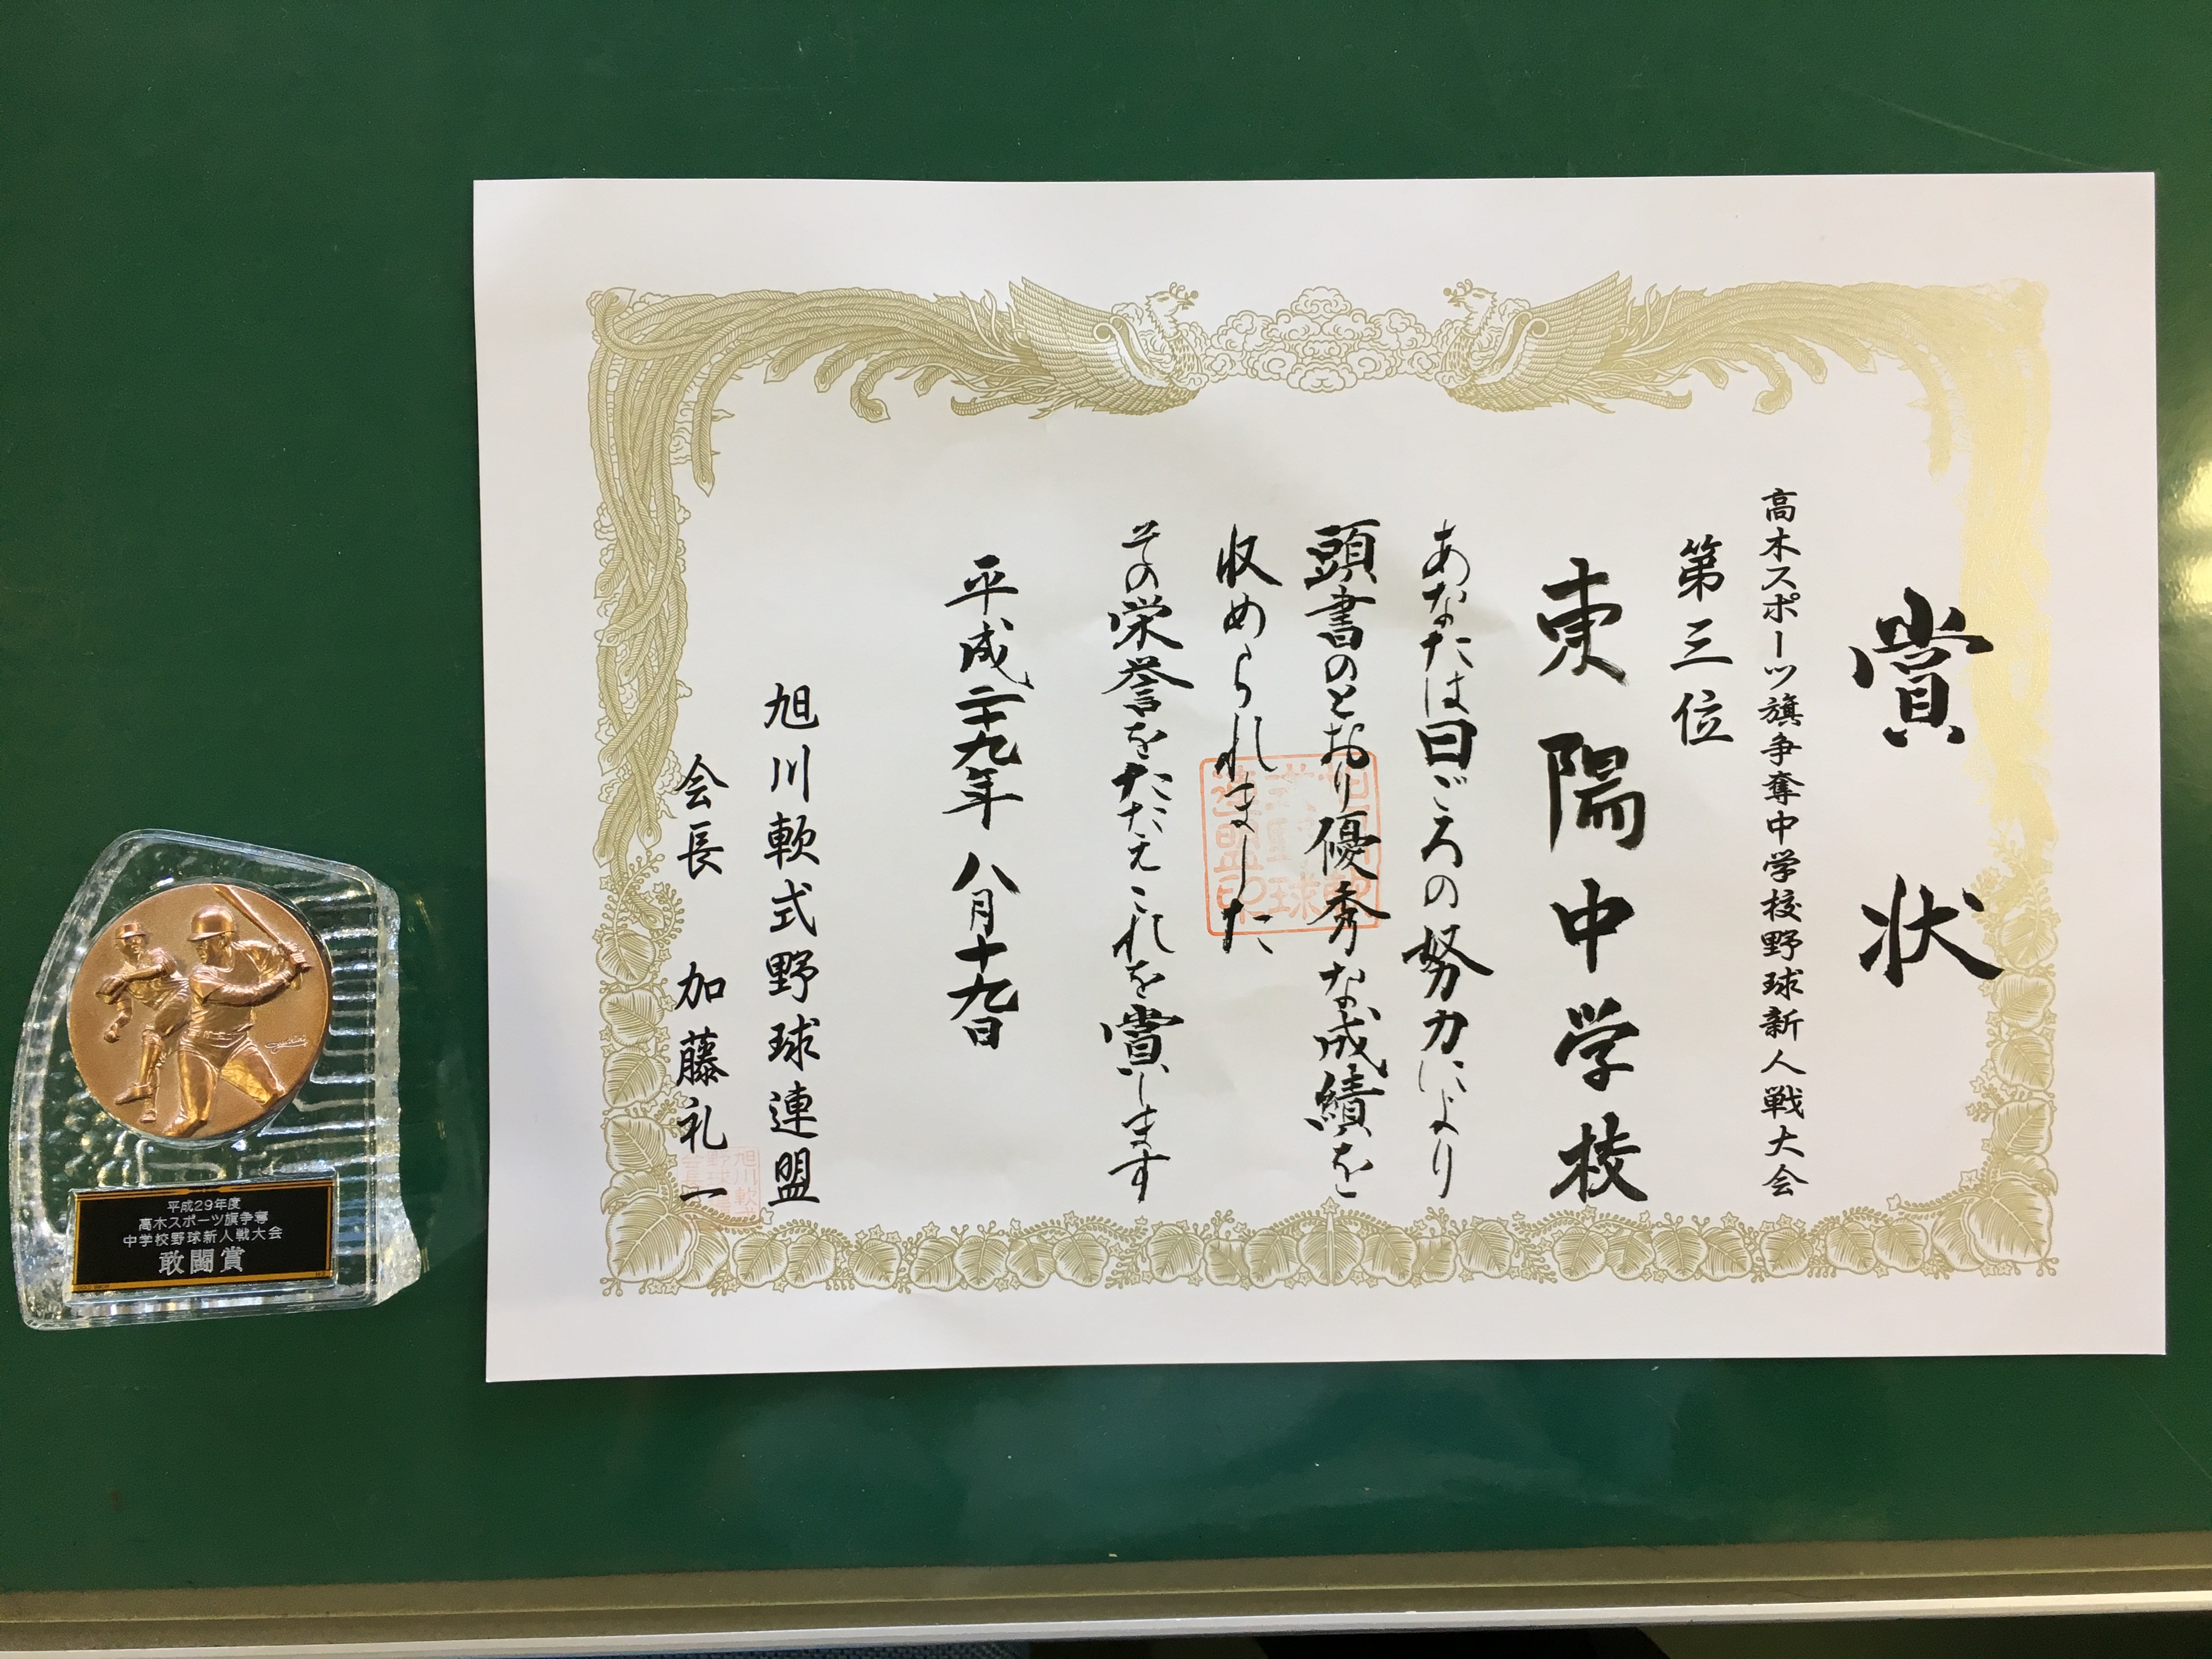 賞状
高木スポーツ旗争奪中学校野球新人戦大会
第三位
東陽中学校
あなたは日ごろの努力により
頭書のとおり優秀な成績を
収められました
その栄誉をたたえこれを賞します
平成二十九年 八月十九日
旭川軟式野球連盟
会長 加藤礼一
平成29年度
高木スポーツ旗争奪
中学校野球新人戦大会
敢闘賞